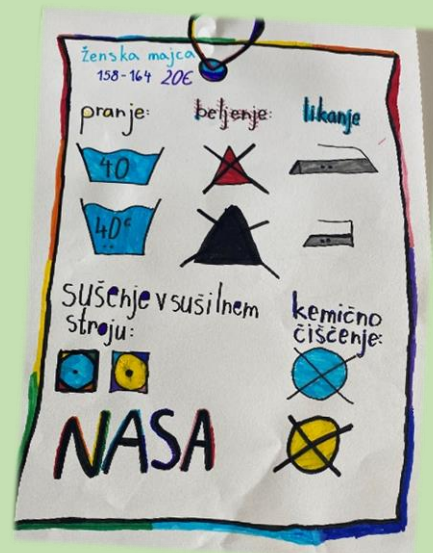 ženska majca
158-164 20€
pranje:
beljenje:
likanje
40
40°
sušenje v sušilnem
stroju:
kemično
čiščenje:
NASA